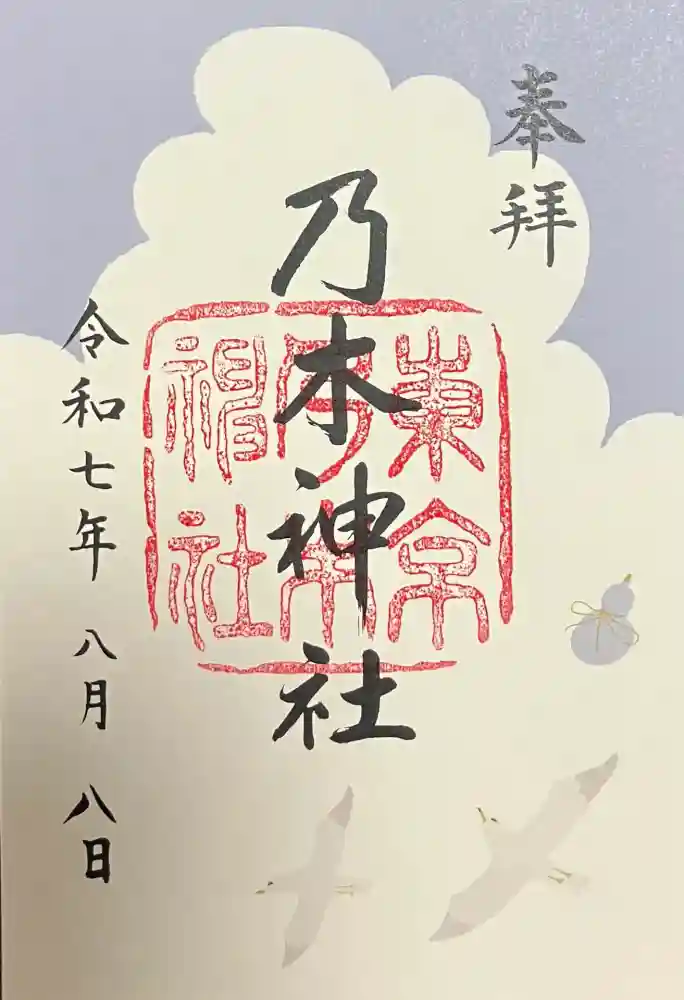 奉拝
乃木神社
東京
乃木
神社
令和七年八月八日